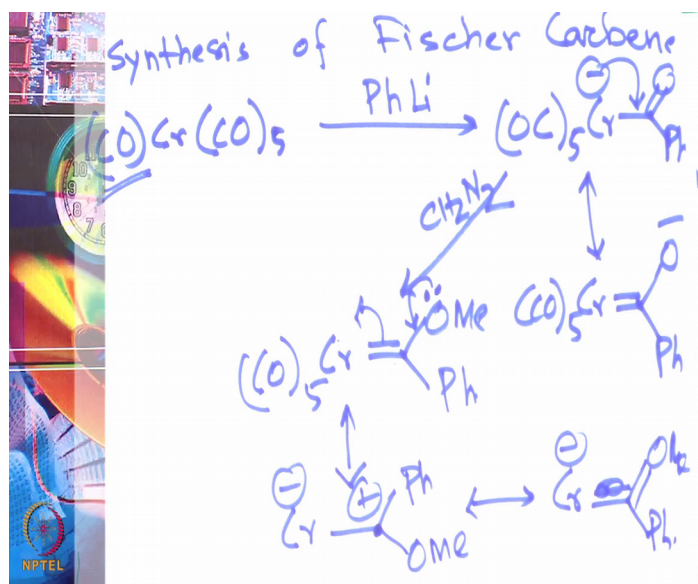 Synthesis of Fischer Carbene
(CO)Cr(CO)5 PhLi (OC)5Cr O Ph
CH2N2
(CO)5Cr OMe Ph
(CO)5Cr O Ph
Cr Ph OMe
Cr OMe Ph.
10
9
8
7
6
NPTEL